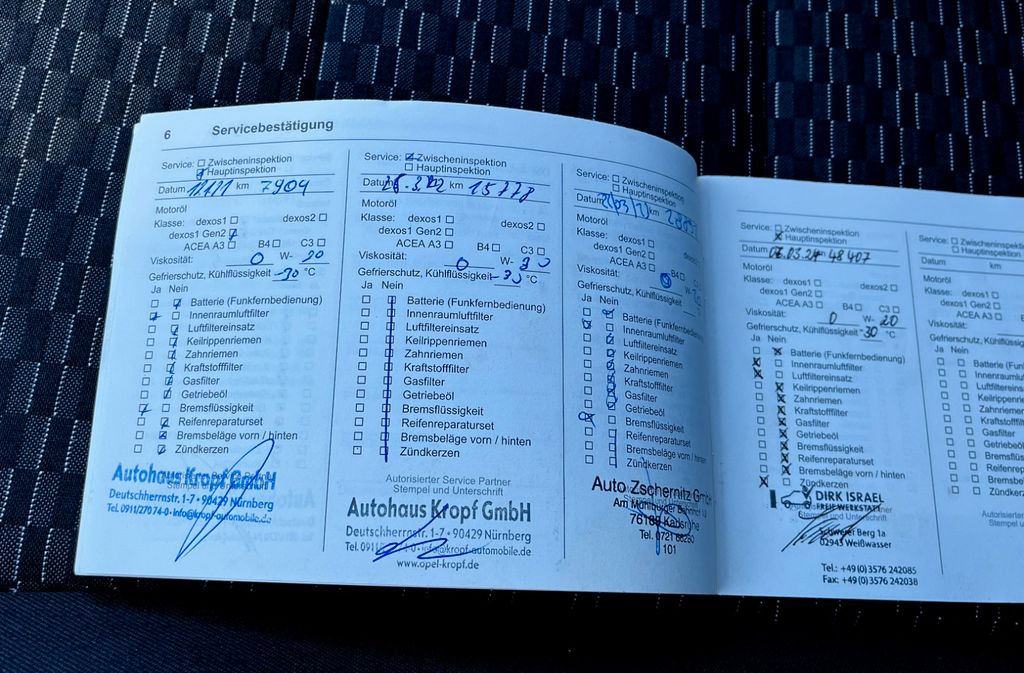 6 Servicebestätigung
Service: Zwischeninspektion
Hauptinspektion
Datum km 7904
Motoröl
Klasse: dexos1 dexos2
dexos1 Gen2
ACEA A3 B4 C3
Viskosität: 0 W- 20
Gefrierschutz, Kühlflüssigkeit -30 °C
Ja Nein
Batterie (Funkfernbedienung)
Innenraumluftfilter
Luftfiltereinsatz
Keilrippenriemen
Zahnriemen
Kraftstofffilter
Gasfilter
Getriebeöl
Bremsflüssigkeit
Reifenreparaturset
Bremsbeläge vorn / hinten
Zündkerzen
Autohaus Kropf GmbH
Deutschherrnstr. 1-7 • 90429 Nürnberg
Tel. 0911/27074-0 • info@kropf-automobile.de
Service: Zwischeninspektion
Hauptinspektion
Datum km 15778
Motoröl
Klasse: dexos1 dexos2
dexos1 Gen2
ACEA A3 B4 C3
Viskosität: 0 W- 30
Gefrierschutz, Kühlflüssigkeit °C
Ja Nein
Batterie (Funkfernbedienung)
Innenraumluftfilter
Luftfiltereinsatz
Keilrippenriemen
Zahnriemen
Kraftstofffilter
Gasfilter
Getriebeöl
Bremsflüssigkeit
Reifenreparaturset
Bremsbeläge vorn / hinten
Zündkerzen
Autorisierter Service Partner
Stempel und Unterschrift
Autohaus Kropf GmbH
Deutschherrnstr. 1-7 • 90429 Nürnberg
Tel. 0911 info@kropf-automobile.de
www.opel-kropf.de
Service: Zwischeninspektion
Hauptinspektion
Datum km
Motoröl
Klasse: dexos1
dexos1 Gen2
ACEA A3 B4
Viskosität: 0
Gefrierschutz, Kühlflüssigkeit
Ja Nein
Batterie (Funkfernbedien
Innenraumluftfilter
Luftfiltereinsatz
Keilrippenriemen
Zahnriemen
Kraftstofffilter
Gasfilter
Getriebeöl
Bremsflüssigkeit
Reifenreparaturset
Bremsbeläge vorn / hinten
Zündkerzen
Auto Zschernitz GmbH
Am Mühlburger Bahnhof
76189 Karlsruhe
Tel. 0721
101
Service: Zwischeninspektion
Hauptinspektion
Datum 06.03.24 48407
Motoröl
Klasse: dexos1 dexos2
dexos1 Gen2
ACEA A3 B4 C3
Viskosität: 0 W- 20
Gefrierschutz, Kühlflüssigkeit -30 °C
Ja Nein
Batterie (Funkfernbedienung)
Innenraumluftfilter
Luftfiltereinsatz
Keilrippenriemen
Zahnriemen
Kraftstofffilter
Gasfilter
Getriebeöl
Bremsflüssigkeit
Reifenreparaturset
Bremsbeläge vorn / hinten
Zündkerzen
DIRK ISRAEL
FREIE WERKSTATT
Stempel und Unterschrift
Berg 1a
02943 Weißwasser
Tel.: +49 (0) 3576 242085
Fax: +49 (0) 3576 242038
Service: Zwischeninspekt
Hauptinspektion
Datum km
Motoröl
Klasse: dexos1
dexos1 Gen2
ACEA A3
Viskosität:
Gefrierschutz, Kühlflüssig
Ja Nein
Batterie (Funkfer
Innenraumluftfilt
Luftfiltereinsatz
Keilrippenrieme
Zahnriemen
Kraftstofffilter
Gasfilter
Getriebeöl
Bremsflüssigke
Reifenreparat
Bremsbeläge
Zündkerzen
Autorisierte
Stempel u